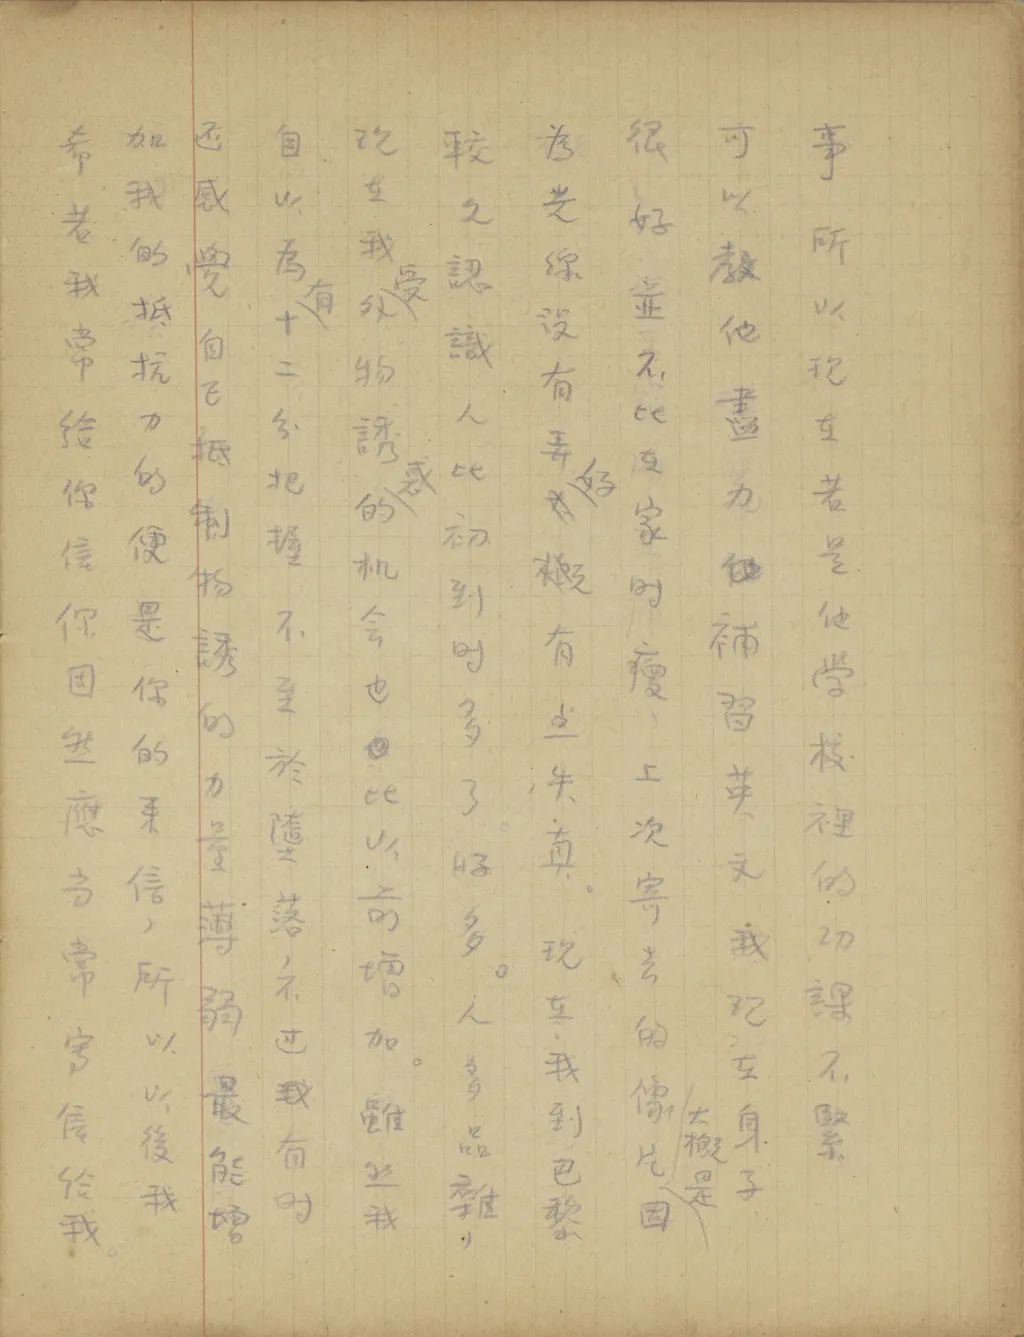 事所以現在若是他學校裡的功課不緊
可以教他盡力補習英文我現在身子
很好並不比在家时瘦，上次寄去的像片大概是因
為光線沒有弄好概有些失真。現在我到巴黎
較久認識人比初到时多了好多。人多品雜，
現在我受外物誘惑的机会也比以前增加。雖然我
自以為有十二分把握不至於墮落，不过我有时
还感覺自己抵制物誘的力量薄弱最能增
加我的抵抗力的便是你的来信，所以以後我
希若我常给你信你固然應当常寄信给我。